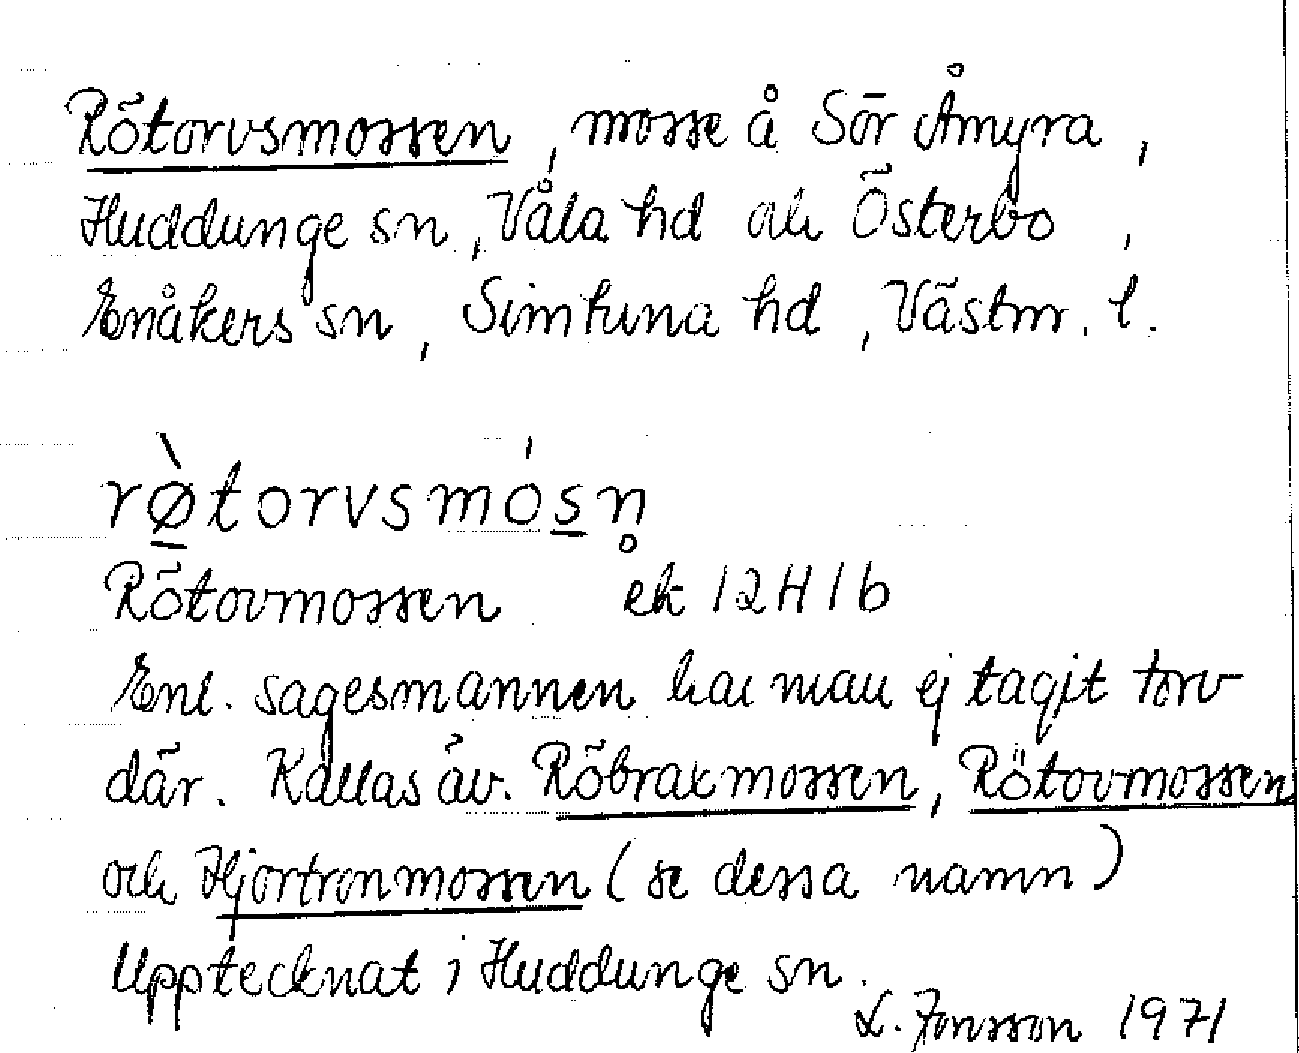 Rötorvsmossen, mosse å Sör Åmyra,
Huddunge sn, Våla hd och Österbo,
Enåkers sn, Simtuna hd, Västm. l.
rø̀torvsmósn̥
Rötovmossen ek 12H1b
Enl. sagesmannen har man ej tagit torv
där. Kallas äv. Röbraxmossen, Rötovmossen
och Hjortronmossen (se dessa namn)
Upptecknat i Huddunge sn.
L. Jonsson 1971